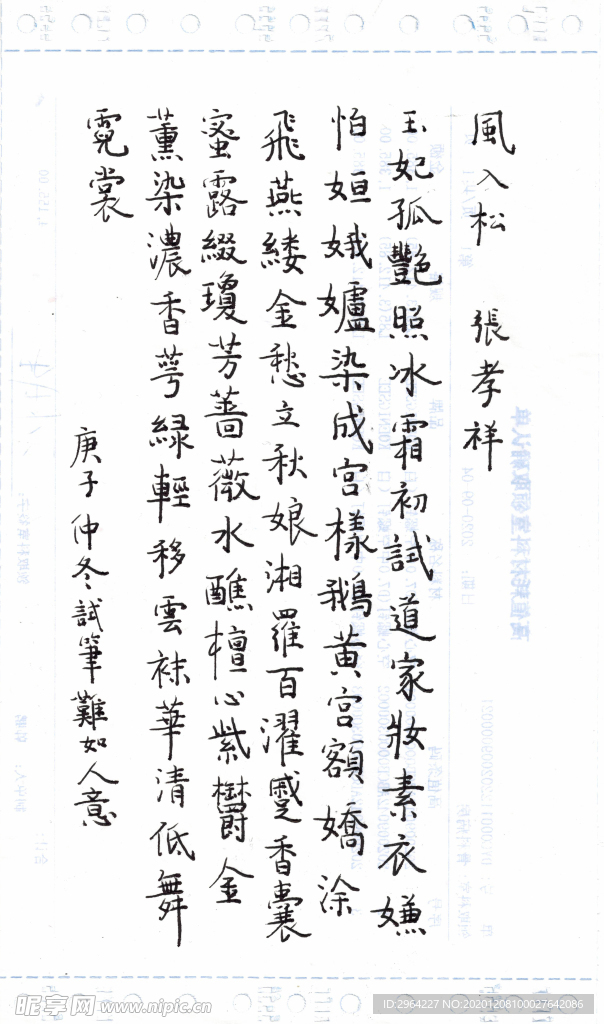 風入松 張孝祥
玉妃孤艷照冰霜初試道家妝素衣嫌
怕姮娥妒染成宮樣鵝黃宮額嬌塗
飛燕縷金愁立秋娘湘羅百濯蹙香囊
蜜露綴瓊芳薔薇水蘸檀心紫鬱金
薰染濃香萼綠輕移雲袜華清低舞
霓裳
庚子仲冬試筆難如人意
昵享网 www.nipic.cn
ID:2964227 NO:20201208100027642086